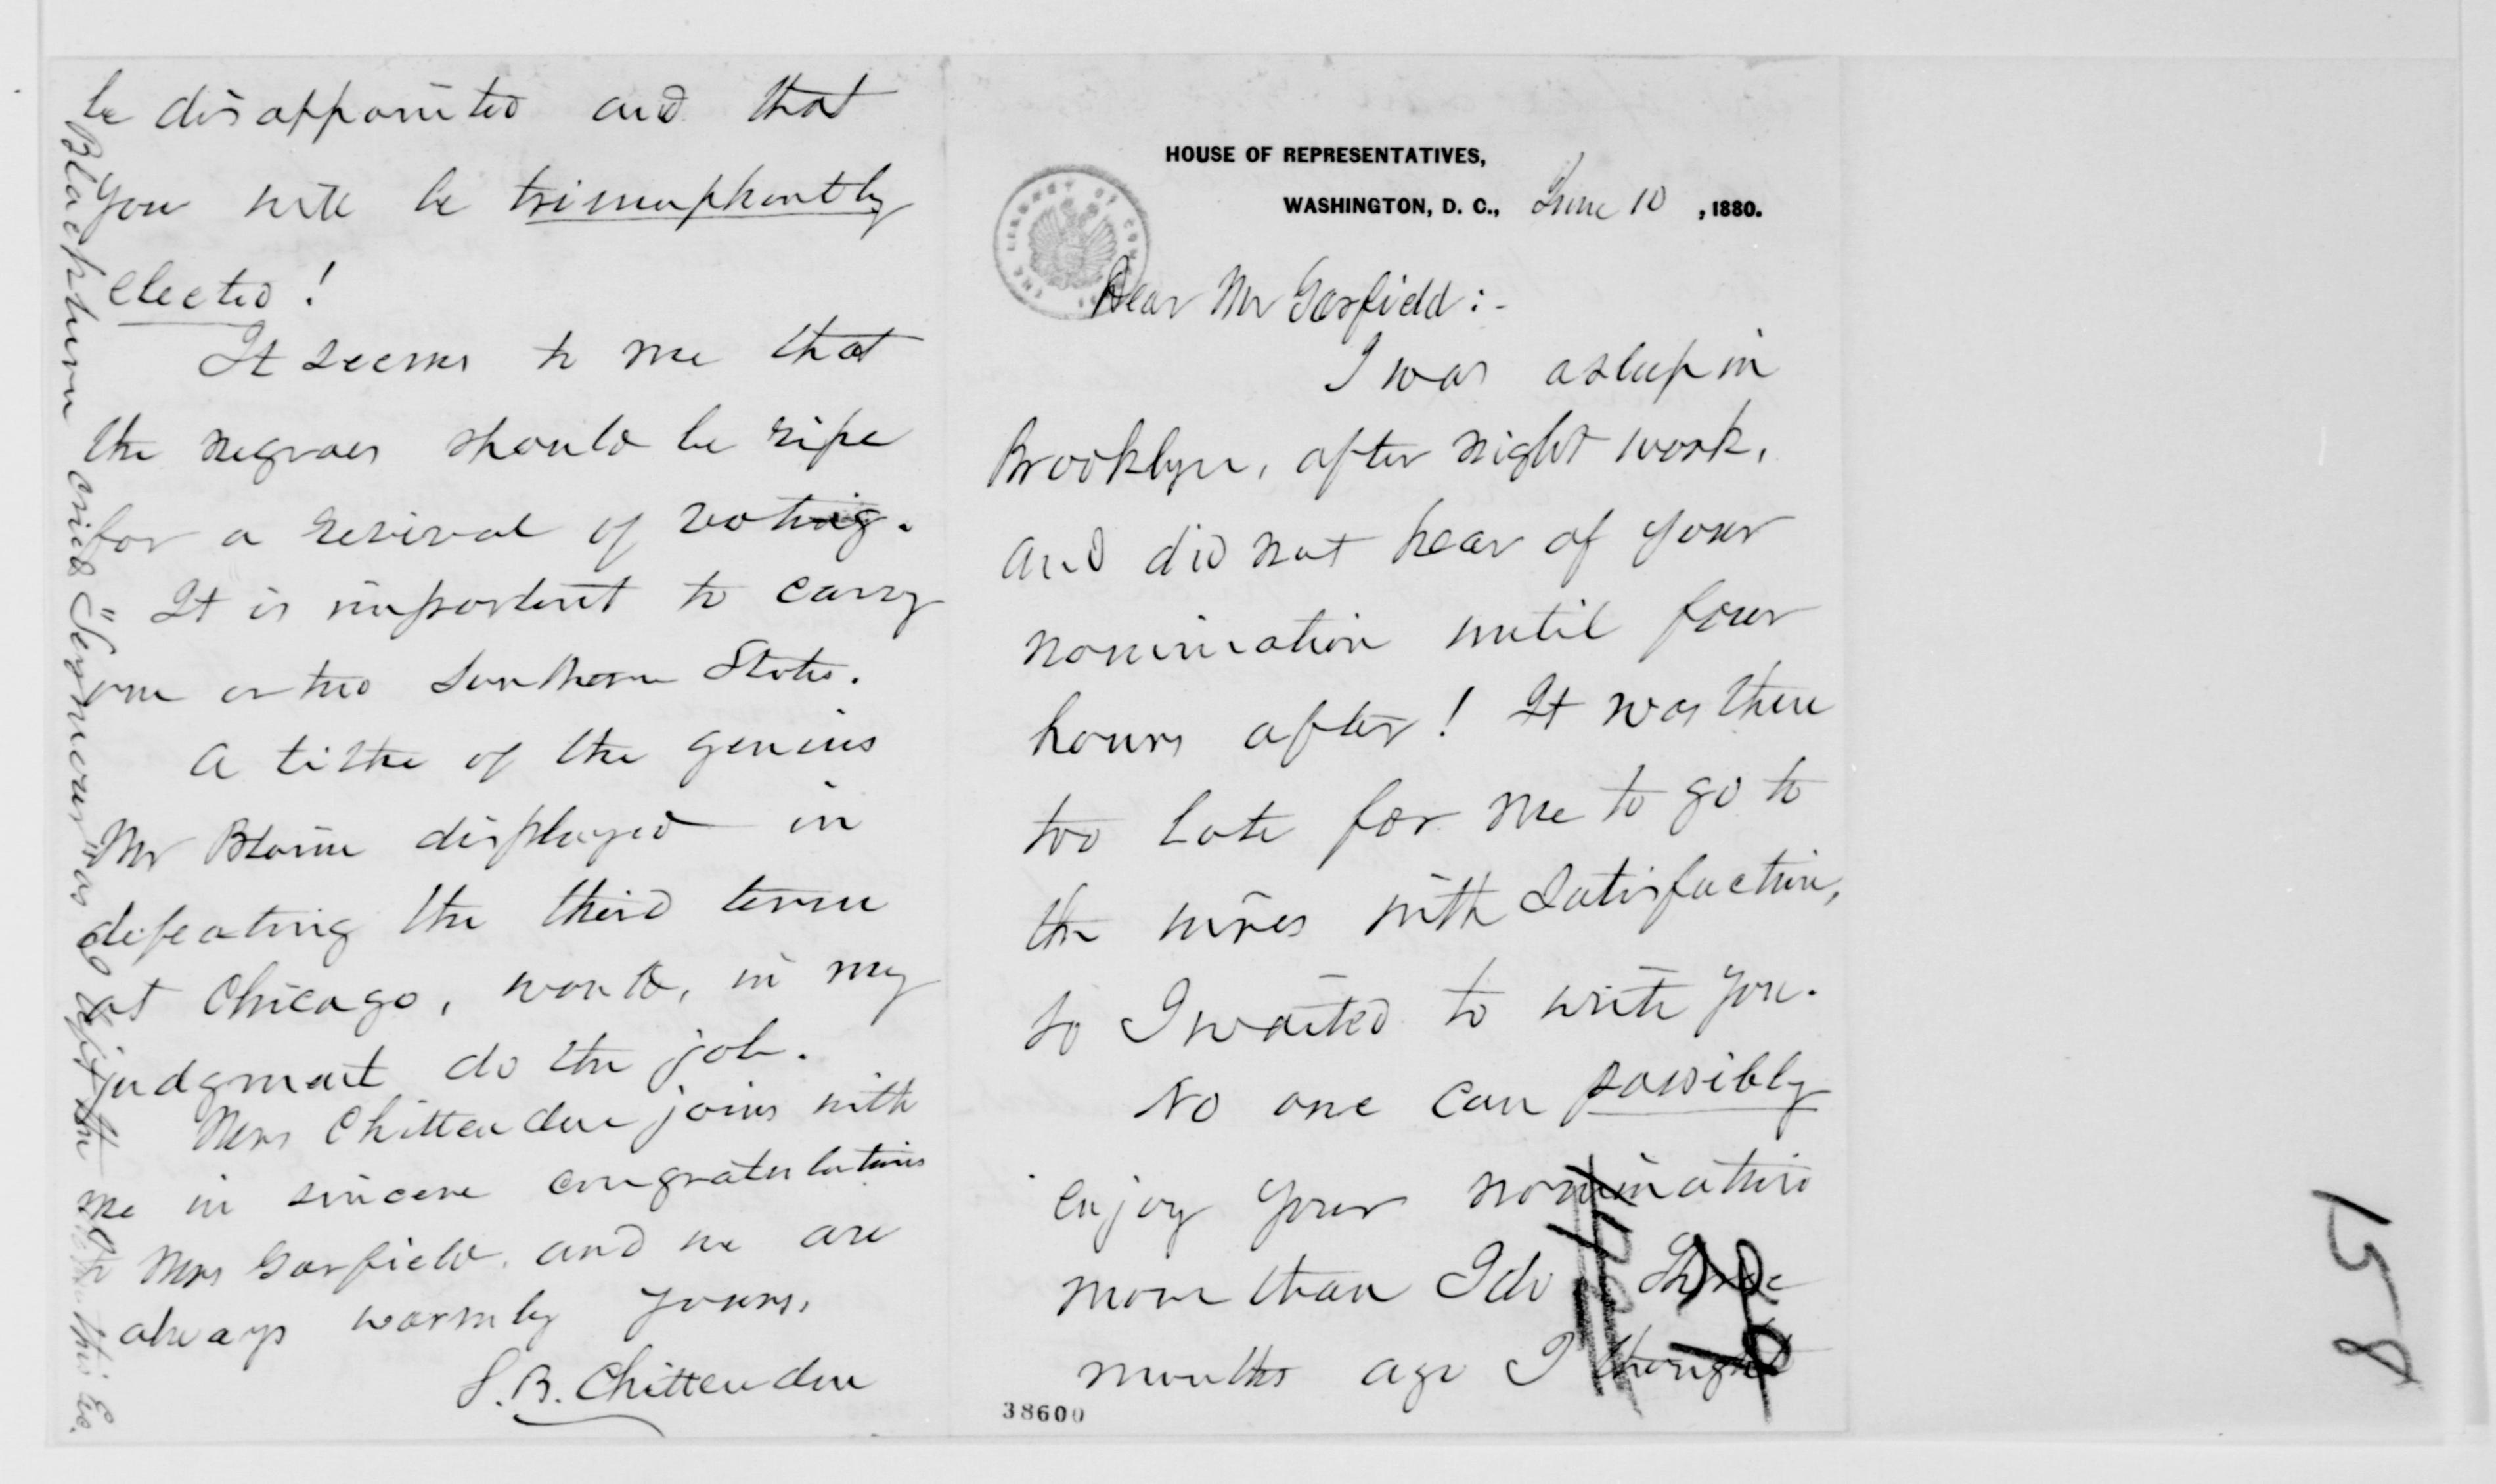 HOUSE OF REPRESENTATIVES,
WASHINGTON, D. C., June 10, 1880.
Dear Mr Garfield:-
I was asleep in
Brooklyn, after night work,
and did not hear of your
nomination until four
hours after! It was then
too late for me to go to
the wires with satisfaction,
so I waited to write you.
No one can possibly
enjoy your nomination
more than I do. Three
months ago I thought
38600
be disappointed and that
you will be triumphantly
elected!
It seems to me that
the negroes should be ripe
for a revival of voting.
It is important to carry
one or two Southern States.
A tithe of the genius
Mr Blaine displayed in
defeating the third term
at Chicago, would, in my
judgment do the job.
Mrs Chittenden joins with
me in sincere congratulations
to Mrs Garfield, and we are
always warmly yours,
S. B. Chittenden
Blackburn said "Seymour" as I left the
this Eve.
158